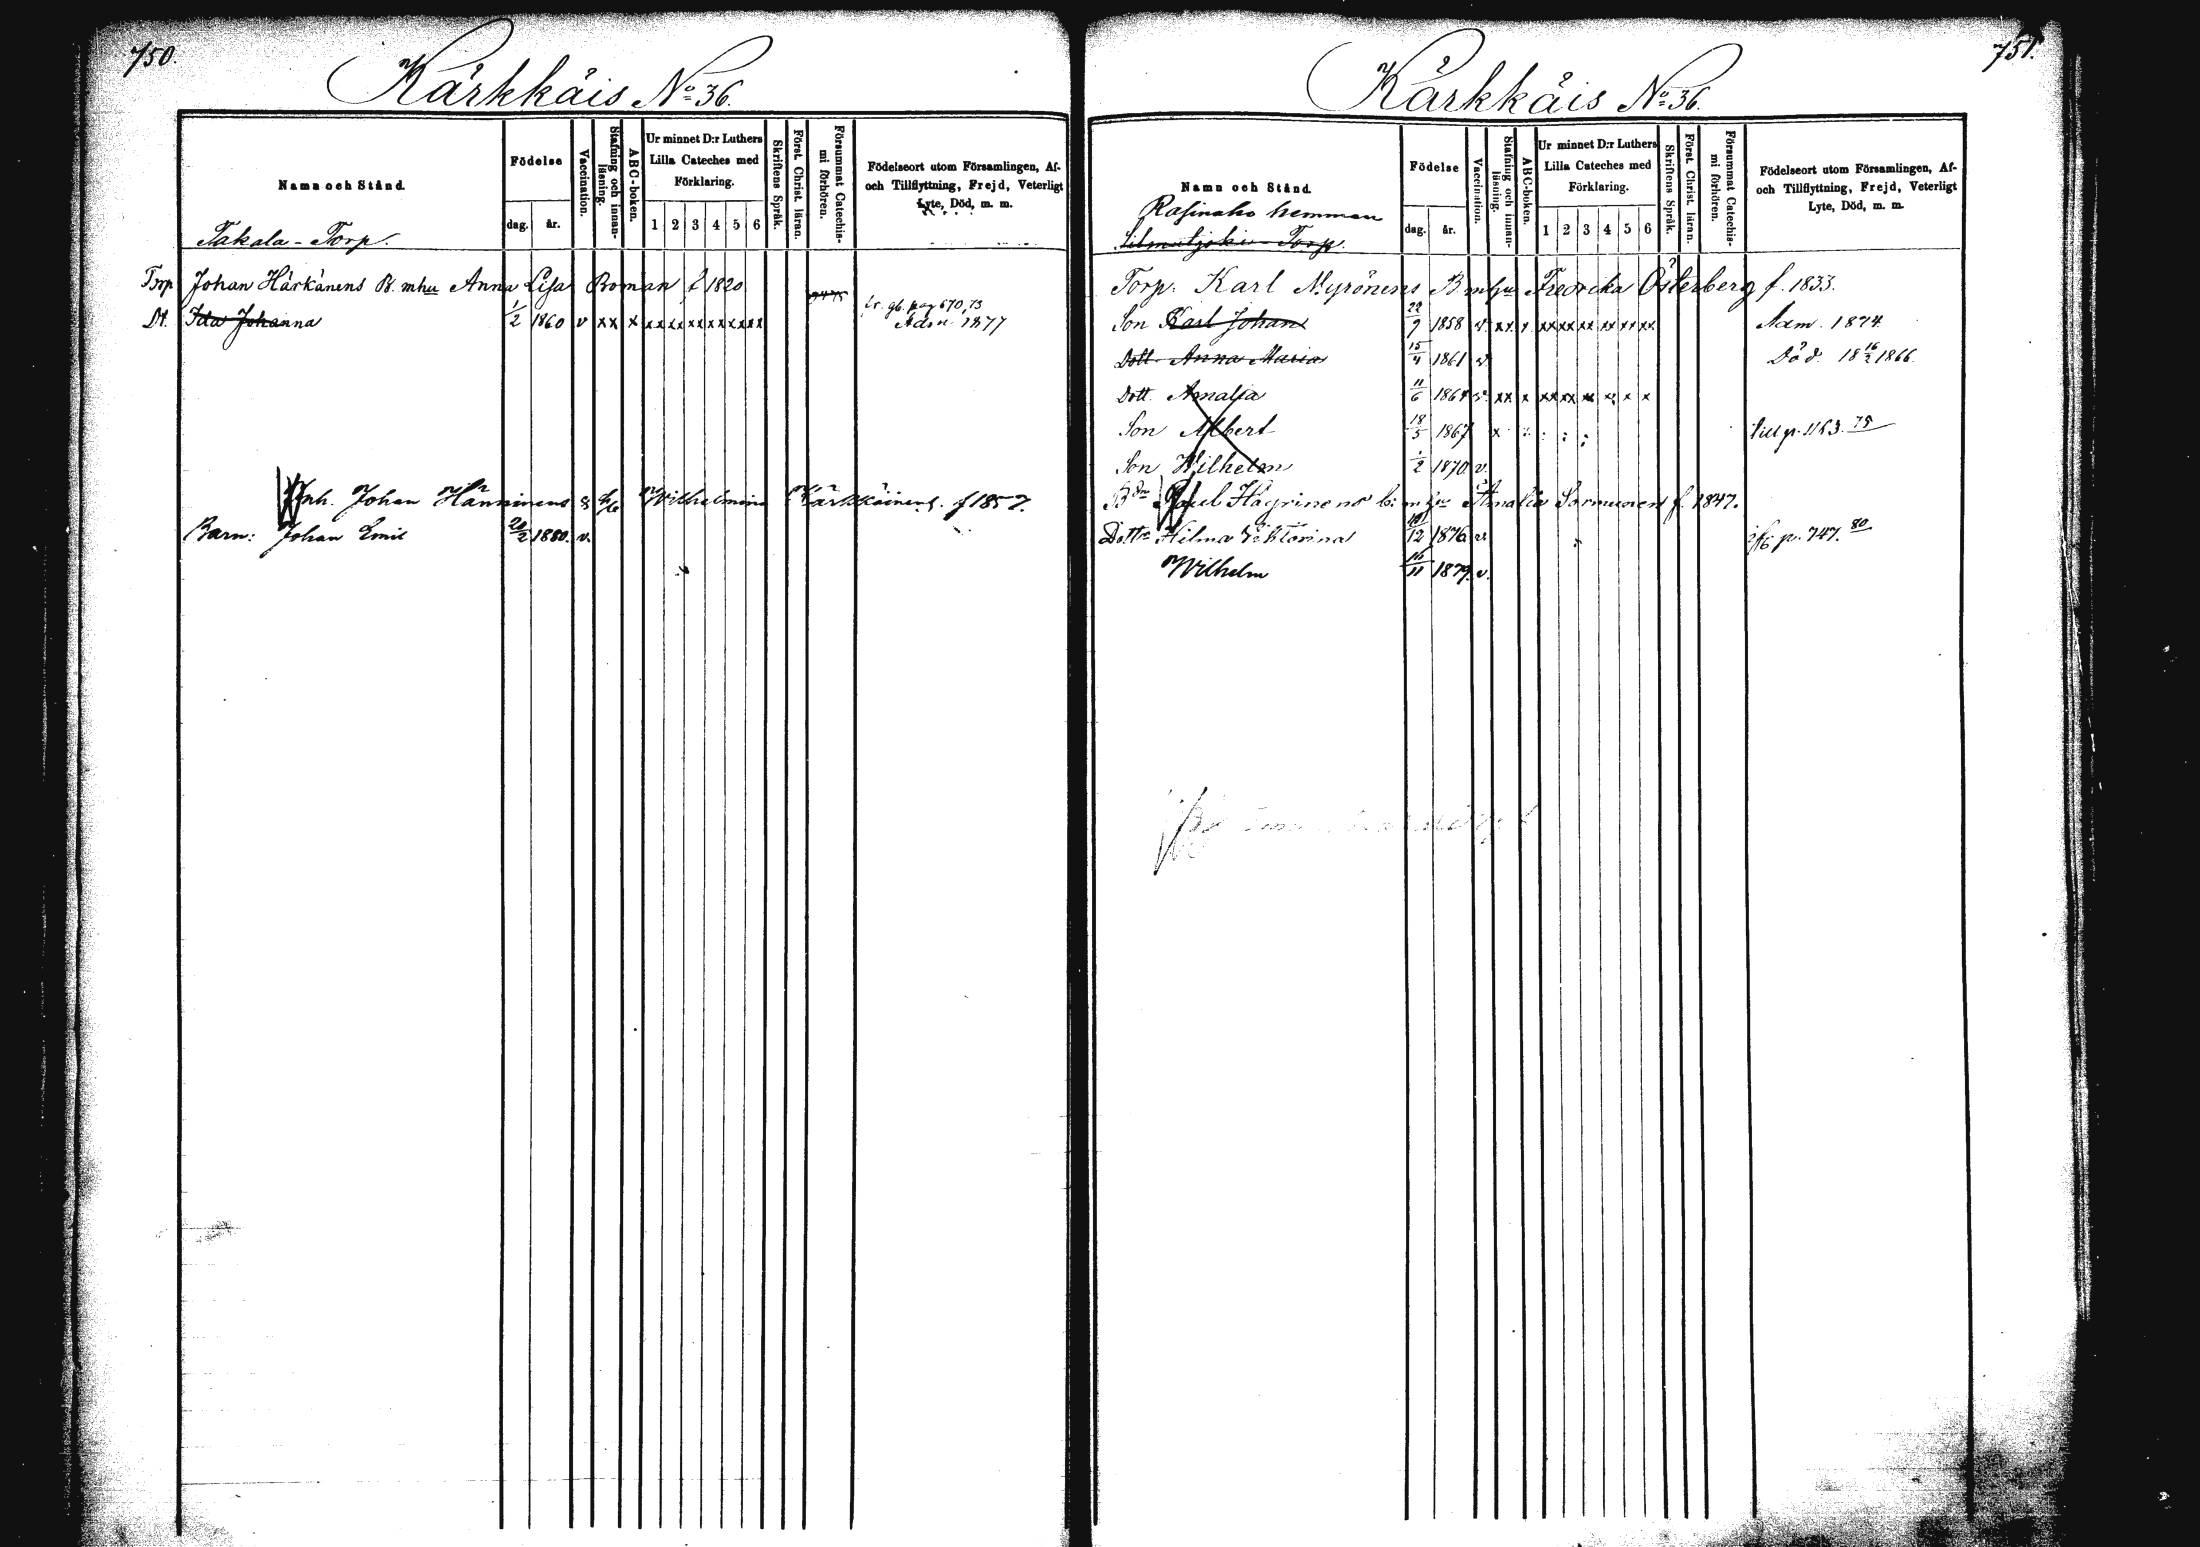 750.
Kärkkäis No 36.
Namn och Stånd.
Födelse
dag. år.
Vaccination.
Stafning och innan-
läsning.
ABC-boken.
Ur minnet D:r Luthers
Lilla Cateches med
Förklaring.
1 2 3 4 5 6
Skriftens Språk.
Först. Christ. läran.
Försummat Catechis-
mi förhören.
Födelseort utom Församlingen, Af-
och Tillflyttning, Frejd, Veterligt
Lyte, Död, m. m.
Takala - Torp.
Torp Johan Härkänens B. mhu Anna Lisa Boman f 1820
pag 670, 73
Dt. Ida Johanna 1/2 1860 v xx x xx xx xx xx xx xx Adm. 1877
Inh. Johan Hänninens Wilhelmina Kärkkäinens. f 1857.
Barn: Johan Emil 20/2 1880. v.
751.
Kärkkäis No 36.
Namn och Stånd.
Födelse
dag. år.
Vaccination.
Stafning och innan-
läsning.
ABC-boken.
Ur minnet D:r Luthers
Lilla Cateches med
Förklaring.
1 2 3 4 5 6
Skriftens Språk.
Först. Christ. läran.
Försummat Catechis-
mi förhören.
Födelseort utom Församlingen, Af-
och Tillflyttning, Frejd, Veterligt
Lyte, Död, m. m.
Rasinaho hemman
Torp.
Torp. Karl Nyrönens B mhu Fredrika Österberg f. 1833.
Son Karl Johan 22/9 1858 v. xx x xx xx xx xx xx xx Adm. 1874
Dott Anna Maria 15/4 1861 v. Död 18 16/2 1866.
Dott. Amalia 11/6 1864 v. xx x xx xx x x x x
Son Albert 18/5 1867 x till p. 1163. 75
Son Wilhelm 1/2 1870 v.
Paul Hägrinens b: mhu Amalia Sormunen f. 1847.
Dottr Hilma Viktorina 12 1876 v. p. 747. 80
Wilhelm 16/11 1879. v.